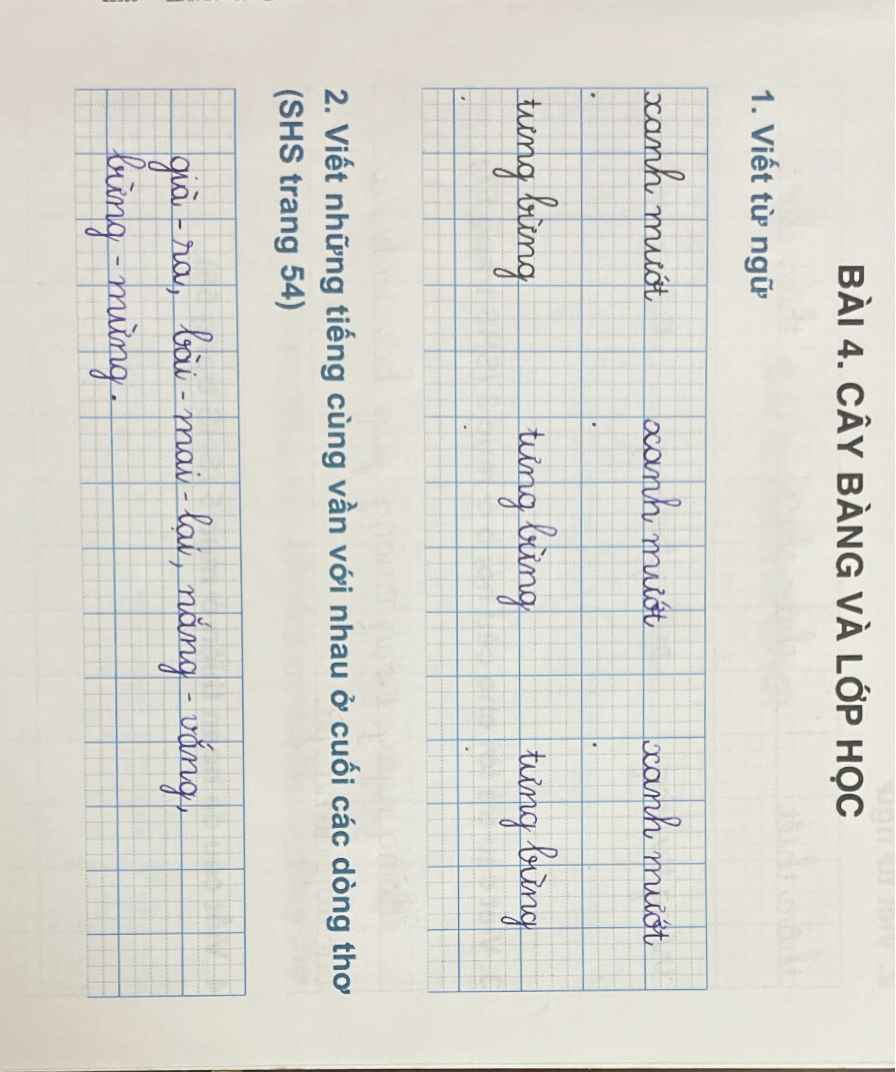 BÀI 4. CÂY BÀNG VÀ LỚP HỌC
1. Viết từ ngữ
xanh mướt xanh mướt xanh mướt
tưng bừng tưng bừng tưng bừng
2. Viết những tiếng cùng vần với nhau ở cuối các dòng thơ
(SHS trang 54)
già - ra, bài - mai - lại, nắng - vắng,
bừng - mừng.